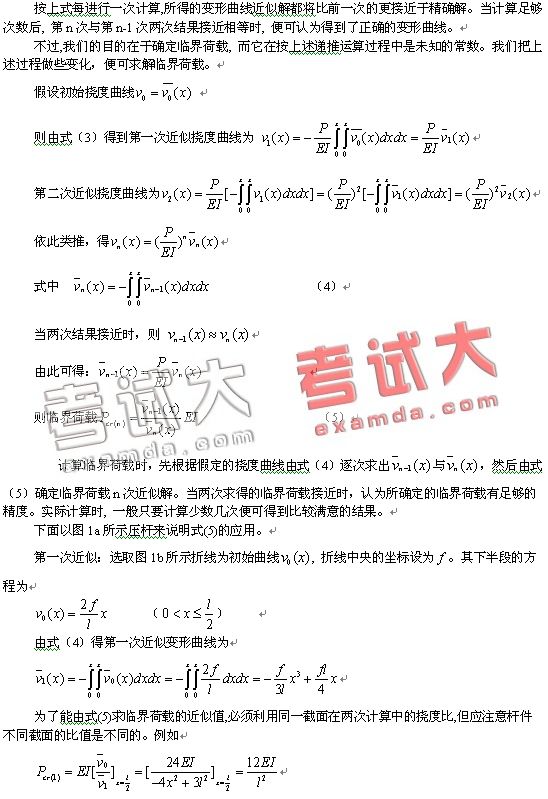 按上式每进行一次计算,所得的变形曲线近似解都将比前一次的更接近于精确解。当计算足够
次数后, 第 n 次与第 n-1 次两次结果接近相等时, 便可认为得到了正确的变形曲线。
不过,我们的目的在于确定临界荷载, 而它在按上述递推运算过程中是未知的常数。我们把上
述过程做些变化，便可求解临界荷载。
假设初始挠度曲线 $v_0 = \overline{v_0}(x)$
则由式（3）得到第一次近似挠度曲线为 $v_1(x) = -\frac{P}{EI}\int_0^x\int_0^x \overline{v_0}(x)dxdx = \frac{P}{EI}\overline{v}_1(x)$
第二次近似挠度曲线为 $v_2(x) = \frac{P}{EI}[-\int_0^x\int_0^x v_1(x)dxdx] = (\frac{P}{EI})^2[-\int_0^x\int_0^x \overline{v}_1(x)dxdx] = (\frac{P}{EI})^2\overline{v}_2(x)$
依此类推，得 $v_n(x) = (\frac{P}{EI})^n\overline{v}_n(x)$
式中 $\overline{v}_n(x) = -\int_0^x\int_0^x \overline{v}_{n-1}(x)dxdx$ （4）
当两次结果接近时，则 $v_{n-1}(x) \approx v_n(x)$
由此可得： $\overline{v}_{n-1}(x) = \frac{P}{EI}\overline{v}_n(x)$
则临界荷载 $P_{cr(n)} = \frac{\overline{v}_{n-1}(x)}{\overline{v}_n(x)}EI$ （5）
计算临界荷载时，先根据假定的挠度曲线由式（4）逐次求出 $\overline{v}_{n-1}(x)$ 与 $\overline{v}_n(x)$，然后由式
（5）确定临界荷载 n 次近似解。当两次求得的临界荷载接近时，认为所确定的临界荷载有足够的
精度。实际计算时, 一般只要计算少数几次便可得到比较满意的结果。
下面以图 1a 所示压杆来说明式(5)的应用。
第一次近似：选取图 1b 所示折线为初始曲线 $v_0(x)$, 折线中央的坐标设为 f 。其下半段的方
程为
$v_0(x) = \frac{2f}{l}x$ （ $0 < x \le \frac{l}{2}$ ）
由式（4）得第一次近似变形曲线为
$\overline{v}_1(x) = -\int_0^x\int_0^x \overline{v}_0(x)dxdx = -\int_0^x\int_0^x \frac{2f}{l}dxdx = -\frac{f}{3l}x^3 + \frac{fl}{4}x$
为了能由式(5)求临界荷载的近似值,必须利用同一截面在两次计算中的挠度比,但应注意杆件
不同截面的比值是不同的。例如
$P_{cr(1)} = EI[\frac{\overline{v}_0}{\overline{v}_1}]_{x=\frac{l}{2}} = [\frac{24EI}{-4x^2+3l^2}]_{x=\frac{l}{2}} = \frac{12EI}{l^2}$
考试大
examda.com
考试大
examda.com